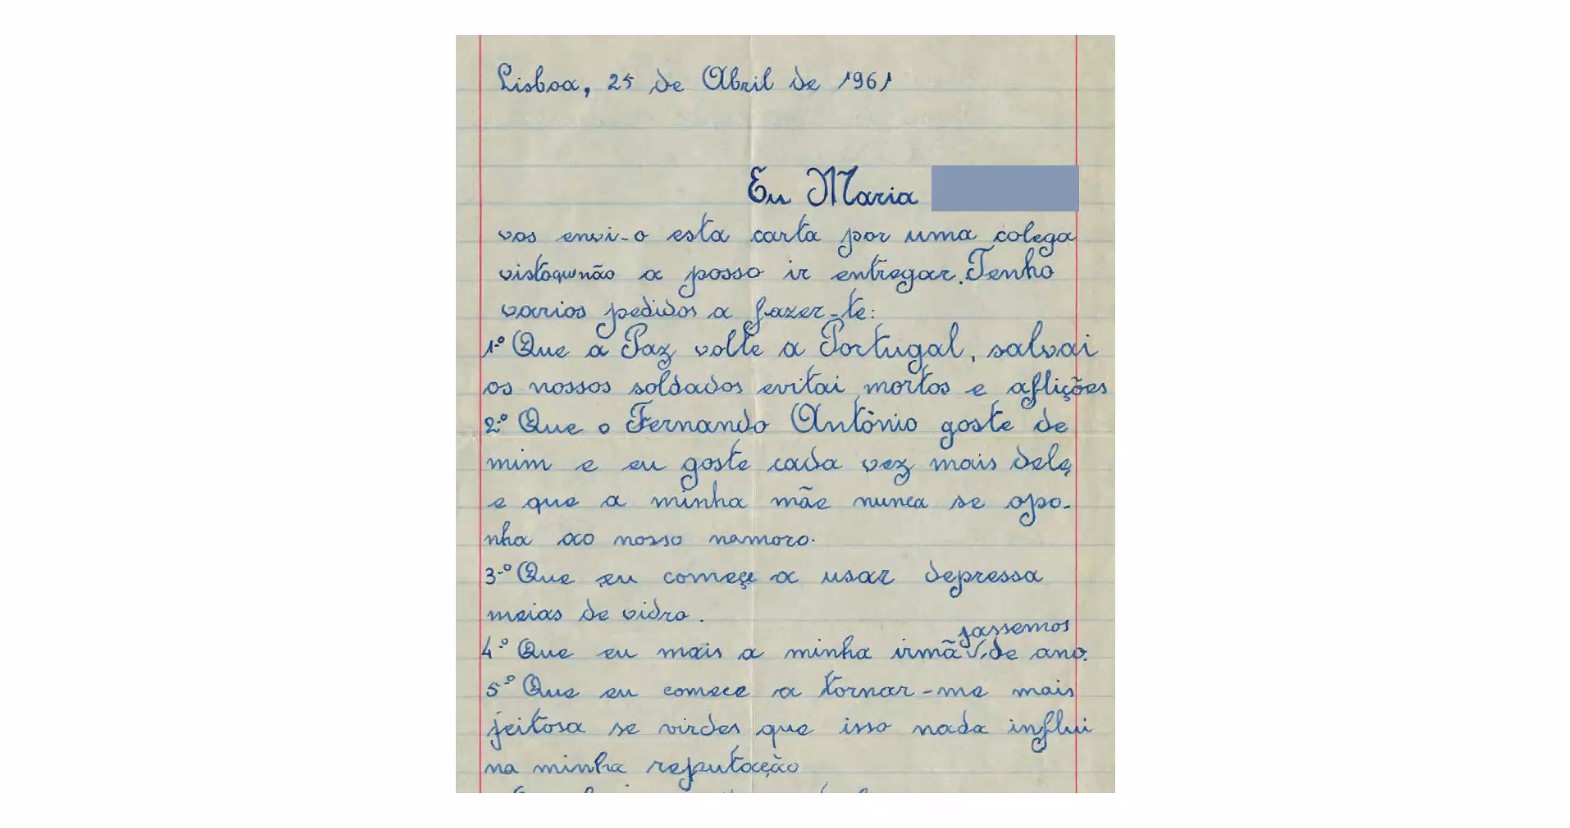 Lisboa, 25 de Abril de 1961
Eu Maria
vos envi-o esta carta por uma colega
vistoquenão a posso ir entregar. Tenho
varios pedidos a fazer-te:
1º Que a Paz volte a Portugal, salvai
os nossos soldados evitai mortos e aflições
2º Que o Fernando António goste de
mim e eu goste cada vez mais dele,
e que a minha mãe nunca se opo-
nha ao nosso namoro.
3º Que eu começe a usar depressa
meias de vidro.
passemos
4º Que eu mais a minha irmã √ de ano.
5º Que eu comece a tornar-me mais
jeitosa se virdes que isso nada influi
na minha reputação